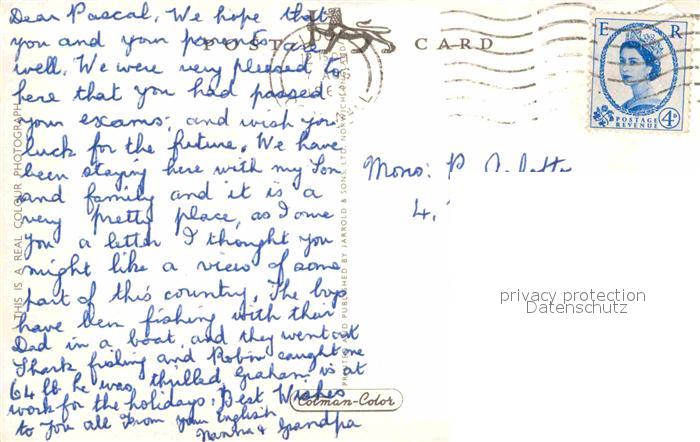 Dear Pascal, We hope that
you and your parents are
well. We were very pleased to
here that you had passed
your exams; and wish you
luck for the future. We have
been staying here with my Son
and family and it is a
very pretty place, as I owe
you a letter I thought you
might like a view of some
part of this country. The boys
have been fishing with their
Dad in a boat, and they went out
Shark fishing and Robin caught one
64 lb he was thrilled, Graham is at
work for the holidays. Best Wishes
to you all From your English
Nanna & Grandpa
POST CARD
E R
POSTAGE
REVENUE
4D
Mons: P.
4,
THIS IS A REAL COLOUR PHOTOGRAPH
PRINTED AND PUBLISHED BY JARROLD & SONS LTD. NORWICH
Colman-Color
privacy protection
Datenschutz